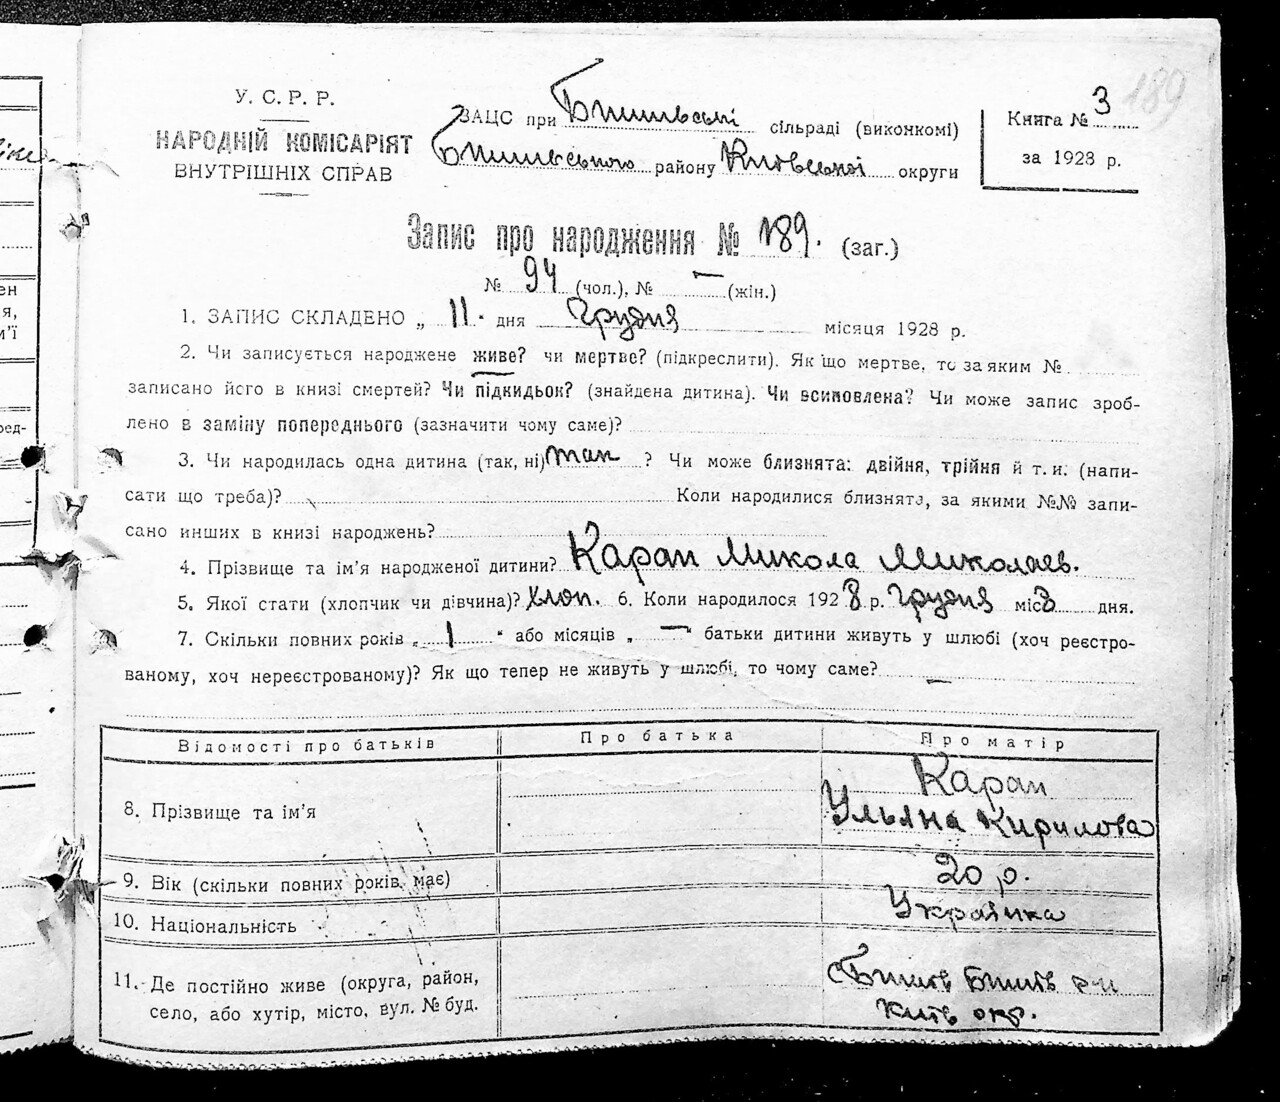 189
У. С. Р. Р.
НАРОДНІЙ КОМІСАРІЯТ
ВНУТРІШНІХ СПРАВ
ЗАЦС при Бишівські сільраді (виконкомі)
Бишівського району Київської округи
Книга № 3
за 1928 р.
Запис про народження № 189. (заг.)
№ 94 (чол.), № — (жін.)
1. ЗАПИС СКЛАДЕНО „ 11. дня Грудня місяця 1928 р.
2. Чи записується народжене живе? чи мертве? (підкреслити). Як що мертве, то за яким №
записано його в книзі смертей? Чи підкидьок? (знайдена дитина). Чи всиновлена? Чи може запис зроб-
лено в заміну попереднього (зазначити чому саме)?
3. Чи народилась одна дитина (так, ні) так ? Чи може близнята: двійня, трійня й т. и. (напи-
сати що треба)? Коли народилися близнята, за якими №№ запи-
сано инших в книзі народжень?
4. Прізвище та ім’я народженої дитини? Карап Микола Миколаєв.
5. Якої стати (хлопчик чи дівчина)? Хлоп. 6. Коли народилося 1928 р. Грудня міс 3 дня.
7. Скільки повних років „ 1 “ або місяців „ — “ батьки дитини живуть у шлюбі (хоч реєстро-
ваному, хоч нереєстрованому)? Як що тепер не живуть у шлюбі, то чому саме? —
Відомості про батьків Про батька Про матір
8. Прізвище та ім’я Карап
Ульяна Кирилова
9. Вік (скільки повних років має) 20 р.
10. Національність Українка
11. Де постійно живе (округа, район, с Бишів Бишів р-н
село, або хутір, місто, вул. № буд. Київ окр.
ен
я,
м’ї
ред-